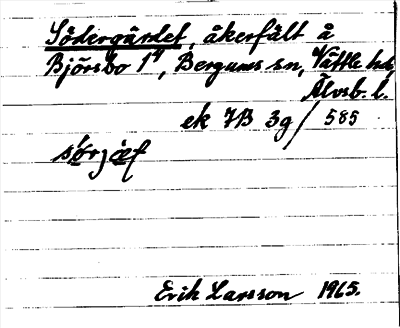 Södergärdet, åkerfält å
Björsbo 1⁴, Bergums sn, Vättle hd,
Älvsb. l.
ek 7B 3g/585
sǿrjæt
Erik Larsson 1965.